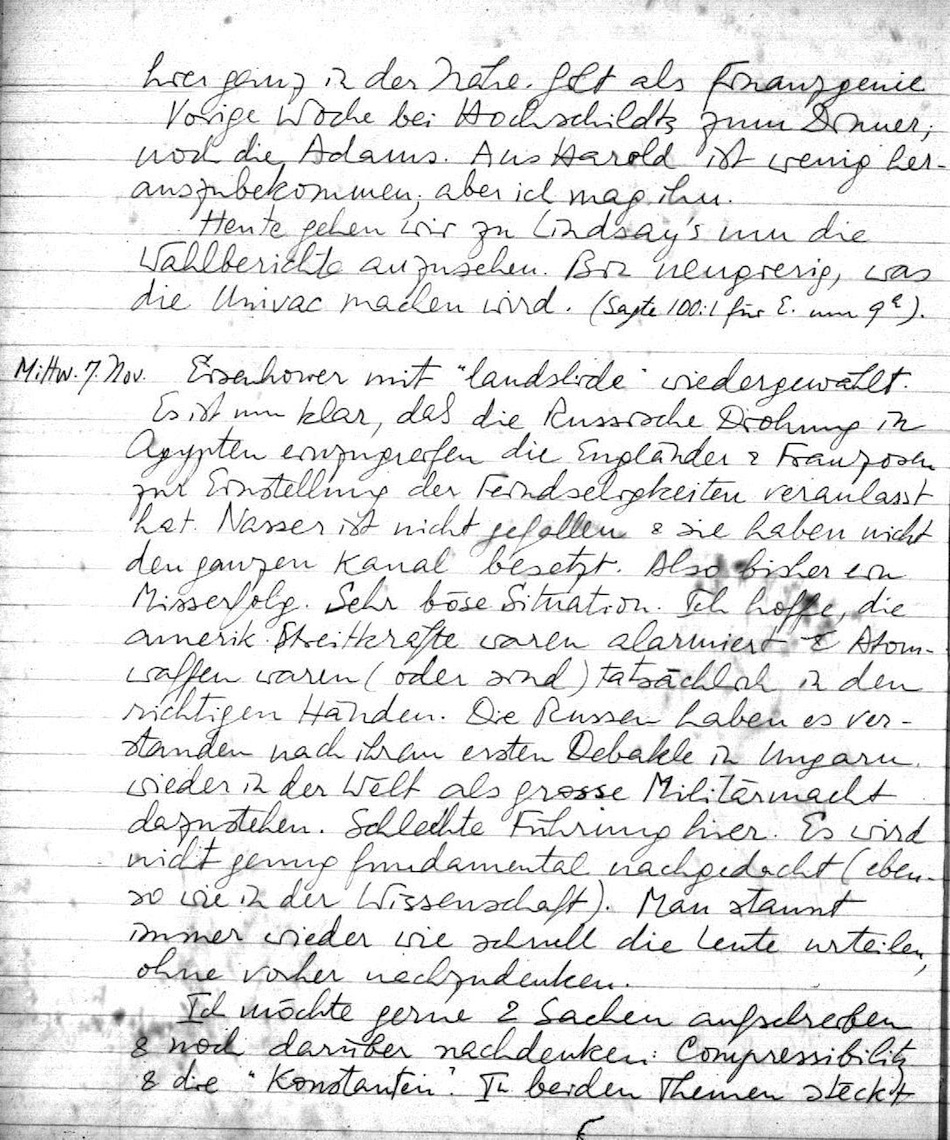 hier ganz in der Nähe. Gilt als Finanzgenie
Vorige Woche bei Hochschildts zum Dinner,
noch die Adams. Aus Harold ist wenig her-
auszubekommen, aber ich mag ihn.
Heute gehen wir zu Lindsay's um die
Wahlberichte anzusehen. Bin neugierig, was
die Univac machen wird. (Sagte 100:1 für E. um 9h).
Mittw. 7. Nov. Eisenhower mit "landslide" wiedergewählt.
Es ist nun klar, daß die Russische Drohung in
Ägypten einzugreifen die Engländer & Franzosen
zur Einstellung der Feindseligkeiten veranlasst
hat. Nasser ist nicht gefallen & sie haben nicht
den ganzen Kanal besetzt. Also bisher ein
Misserfolg. Sehr böse Situation. Ich hoffe, die
amerik. Streitkräfte waren alarmiert & Atom-
waffen waren (oder sind) tatsächlich in den
richtigen Händen. Die Russen haben es ver-
standen nach ihrem ersten Debakle in Ungarn
wieder in der Welt als grosse Militärmacht
dazustehen. Schlechte Führung hier. Es wird
nicht genug fundamental nachgedacht (eben-
so wie in der Wissenschaft). Man staunt
immer wieder wie schnell die Leute urteilen,
ohne vorher nachzudenken.
Ich möchte gerne 2 Sachen aufschreiben
& noch darüber nachdenken: Compressibility
& die "Konstanten". In beiden Themen steckt